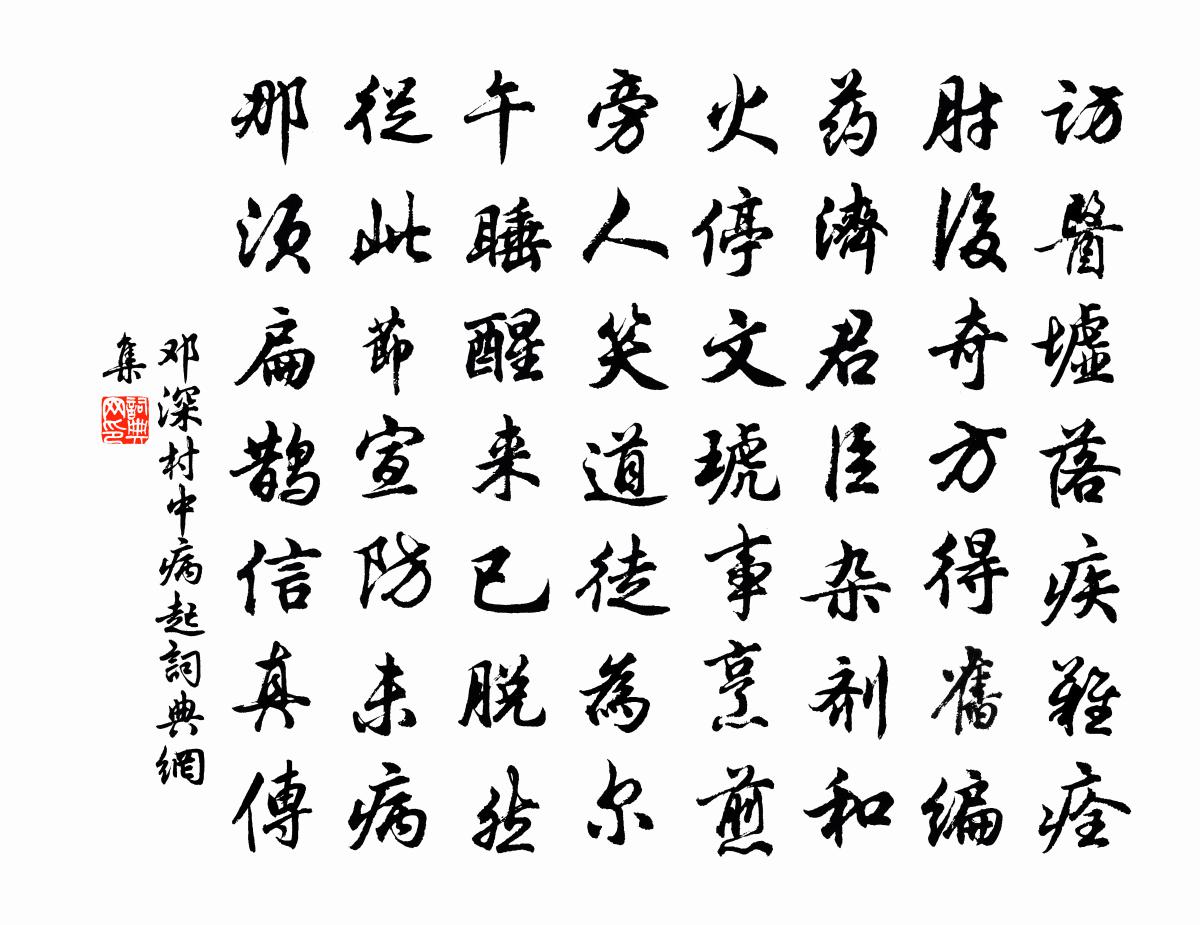 访醫墟落疾難痊
肘後奇方得舊编
药濟君臣杂剂和
火停文琥事烹煎
旁人笑道徒為尔
午睡醒来已脱然
從此節宣防未病
那须扁鹊信真傳
邓深村中病起詞典網
集
詞典网印